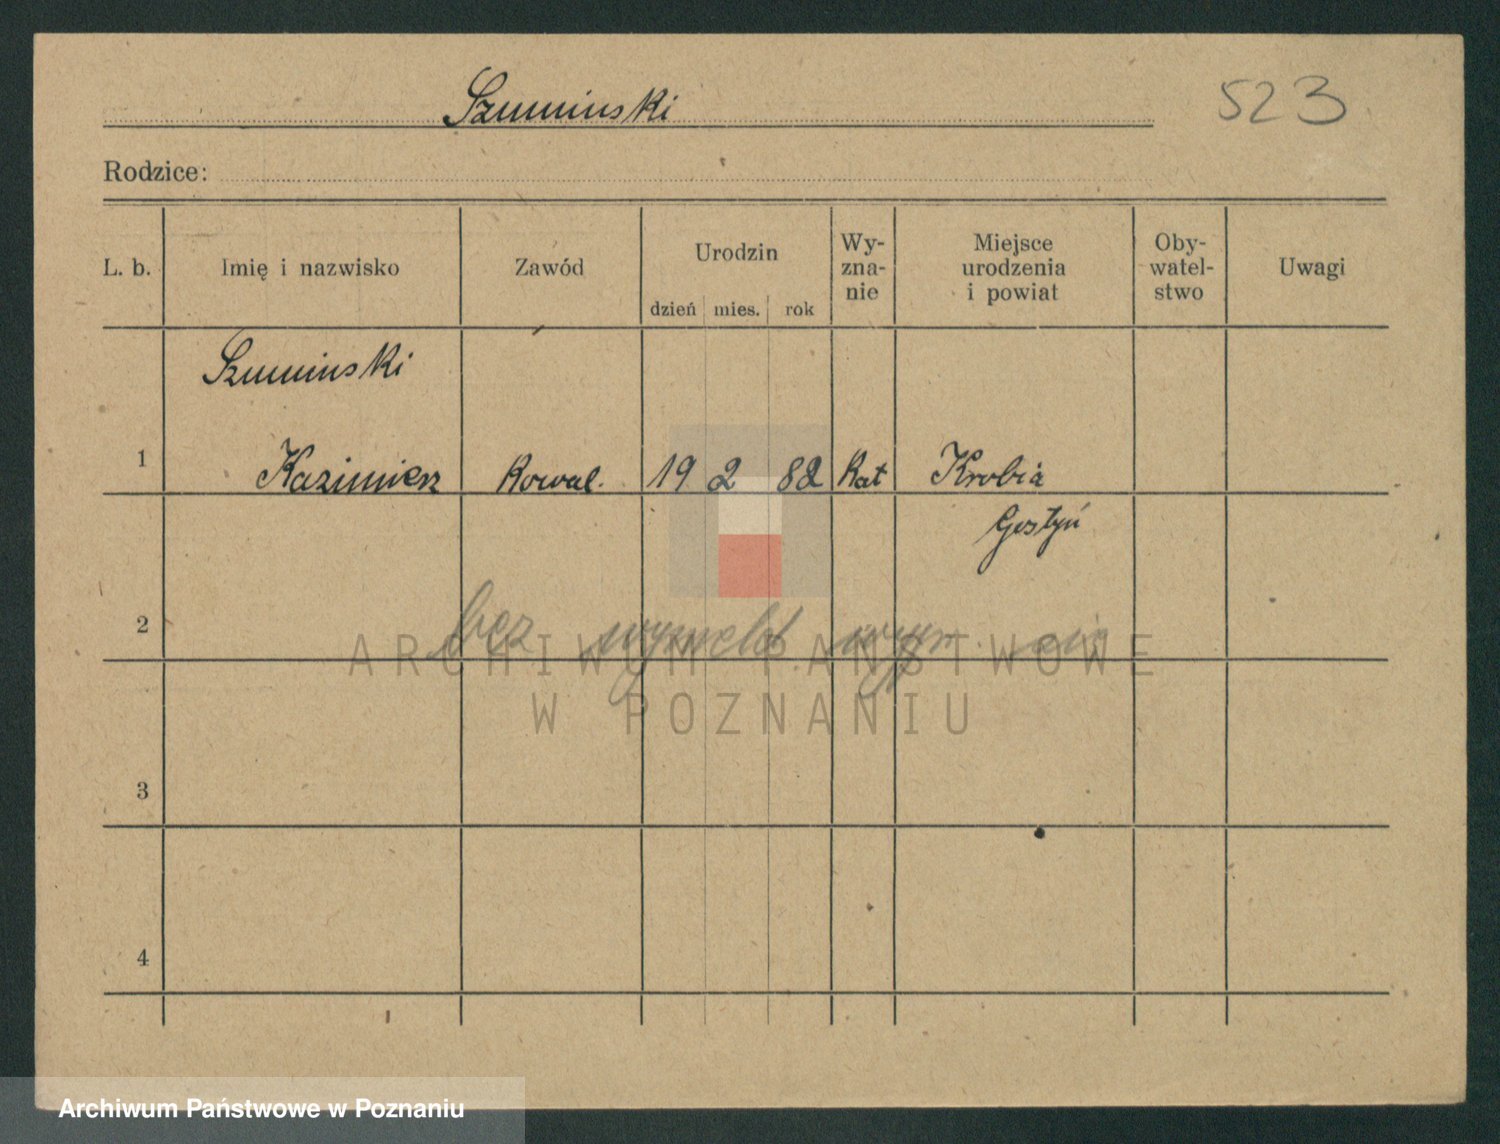 Szuminski
523
Rodzice:
L. b.
Imię i nazwisko
Zawód
Urodzin
dzień mies. rok
Wy-
zna-
nie
Miejsce
urodzenia
i powiat
Oby-
watel-
stwo
Uwagi
Szuminski
1 Kazimierz Kowal. 19 2 82 Kat Krobia
Gostyń
2 bez się
ARCHIWUM PAŃSTWOWE
W POZNANIU
3
4
Archiwum Państwowe w Poznaniu